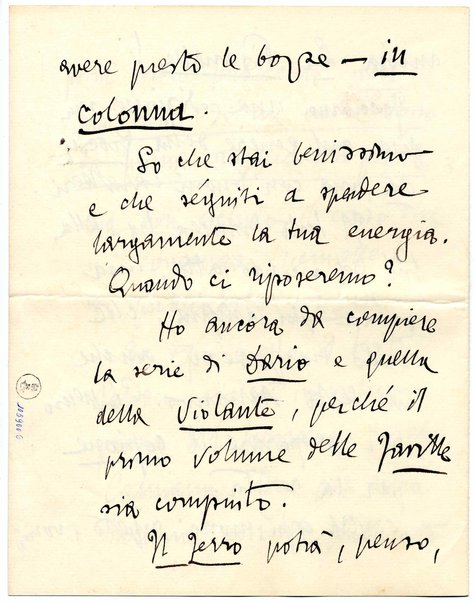 avere presto le bozze — in
colonna.
So che stai benissimo
e che séguiti a spendere
largamente la tua energia.
Quando ci riposeremo?
Ho ancóra da compiere
la serie di Dario e quella
della Violante, perché il
primo volume delle Faville
sia compiuto.
Il Ferro potrà, penso,